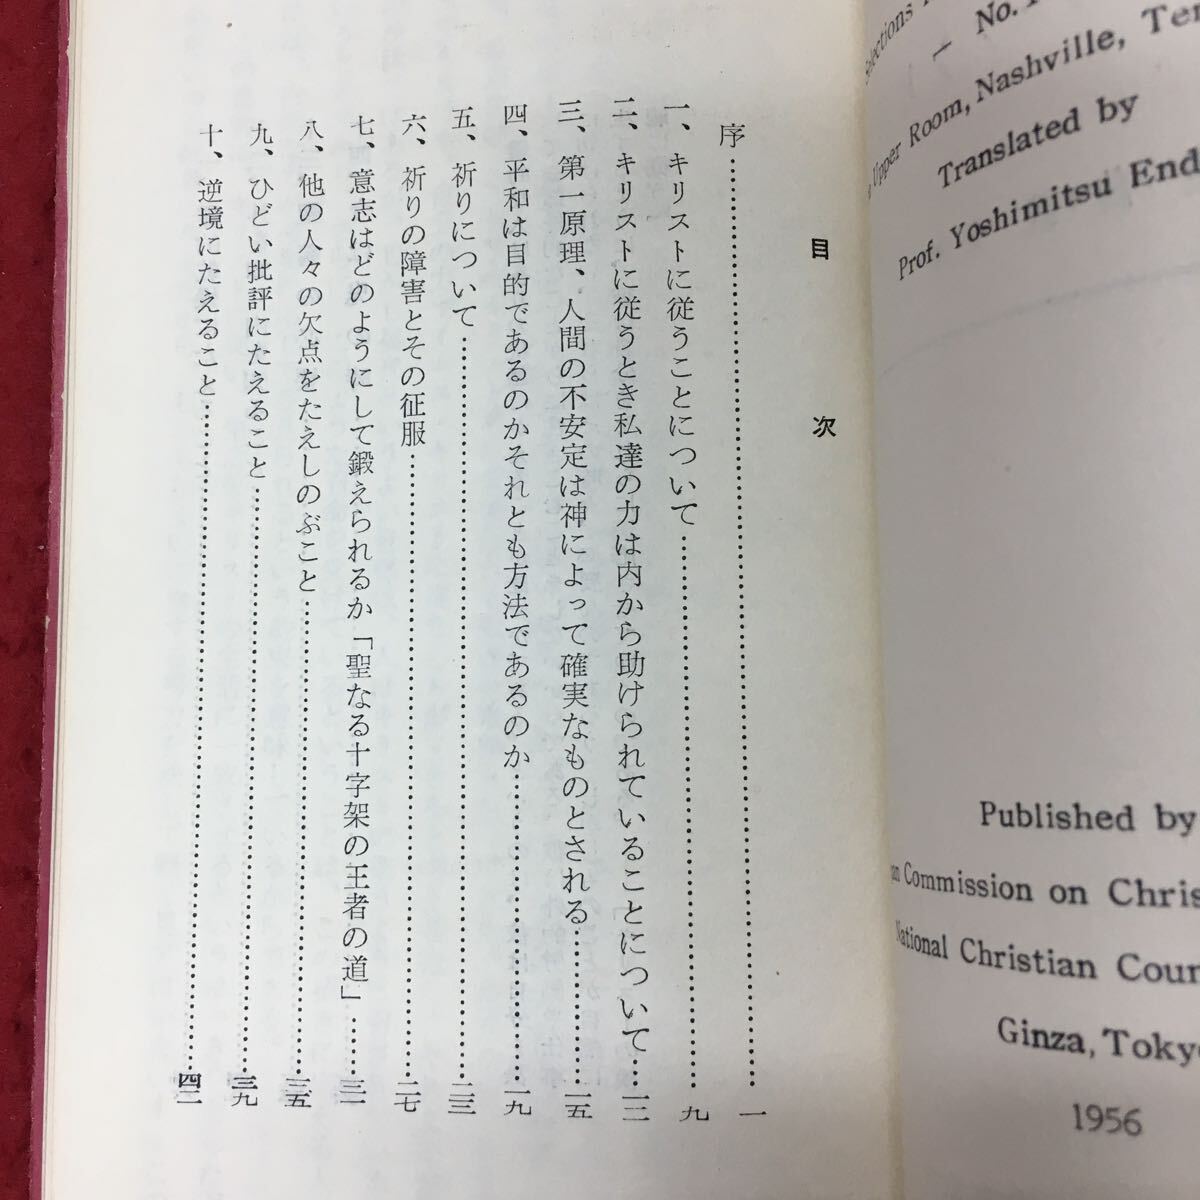 目次
序……一
一、キリストに従うことについて……九
二、キリストに従うとき私達の力は内から助けられていることについて……一二
三、第一原理、人間の不安定は神によって確実なものとされる……一五
四、平和は目的であるのかそれとも方法であるのか……一九
五、祈りについて……二三
六、祈りの障害とその征服……二七
七、意志はどのようにして鍛えられるか「聖なる十字架の王者の道」……三一
八、他の人々の欠点をたえしのぶこと……三五
九、ひどい批評にたえること……三九
十、逆境にたえること……四二
— No.
Upper Room, Nashville,
Translated by
Prof. Yoshimitsu
Published by
Commission on
National Christian
Ginza,
1956